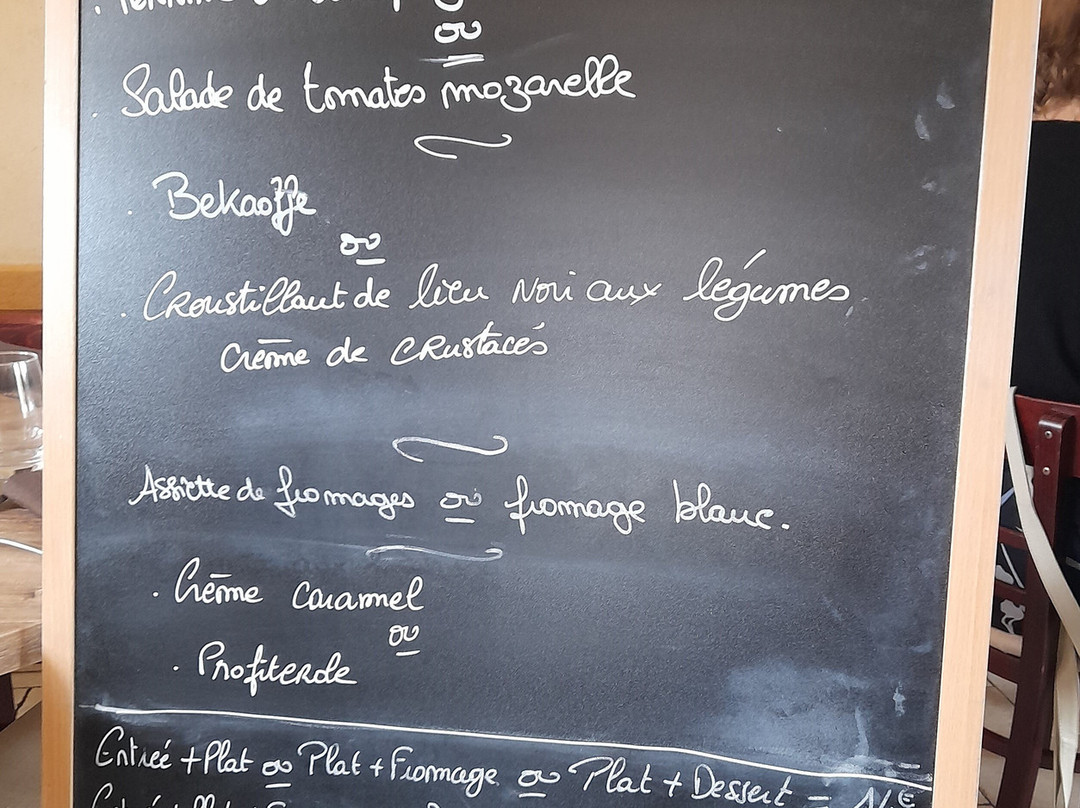 ou
. Salade de tomates mozarelle
. Bekaoffe
ou
. Croustillant de lieu Noir aux légumes,
crème de crustacés
Assiette de fromages ou fromage blanc.
. Crème caramel
ou
. Profiterole
Entrée + Plat ou Plat + Fromage ou Plat + Dessert =